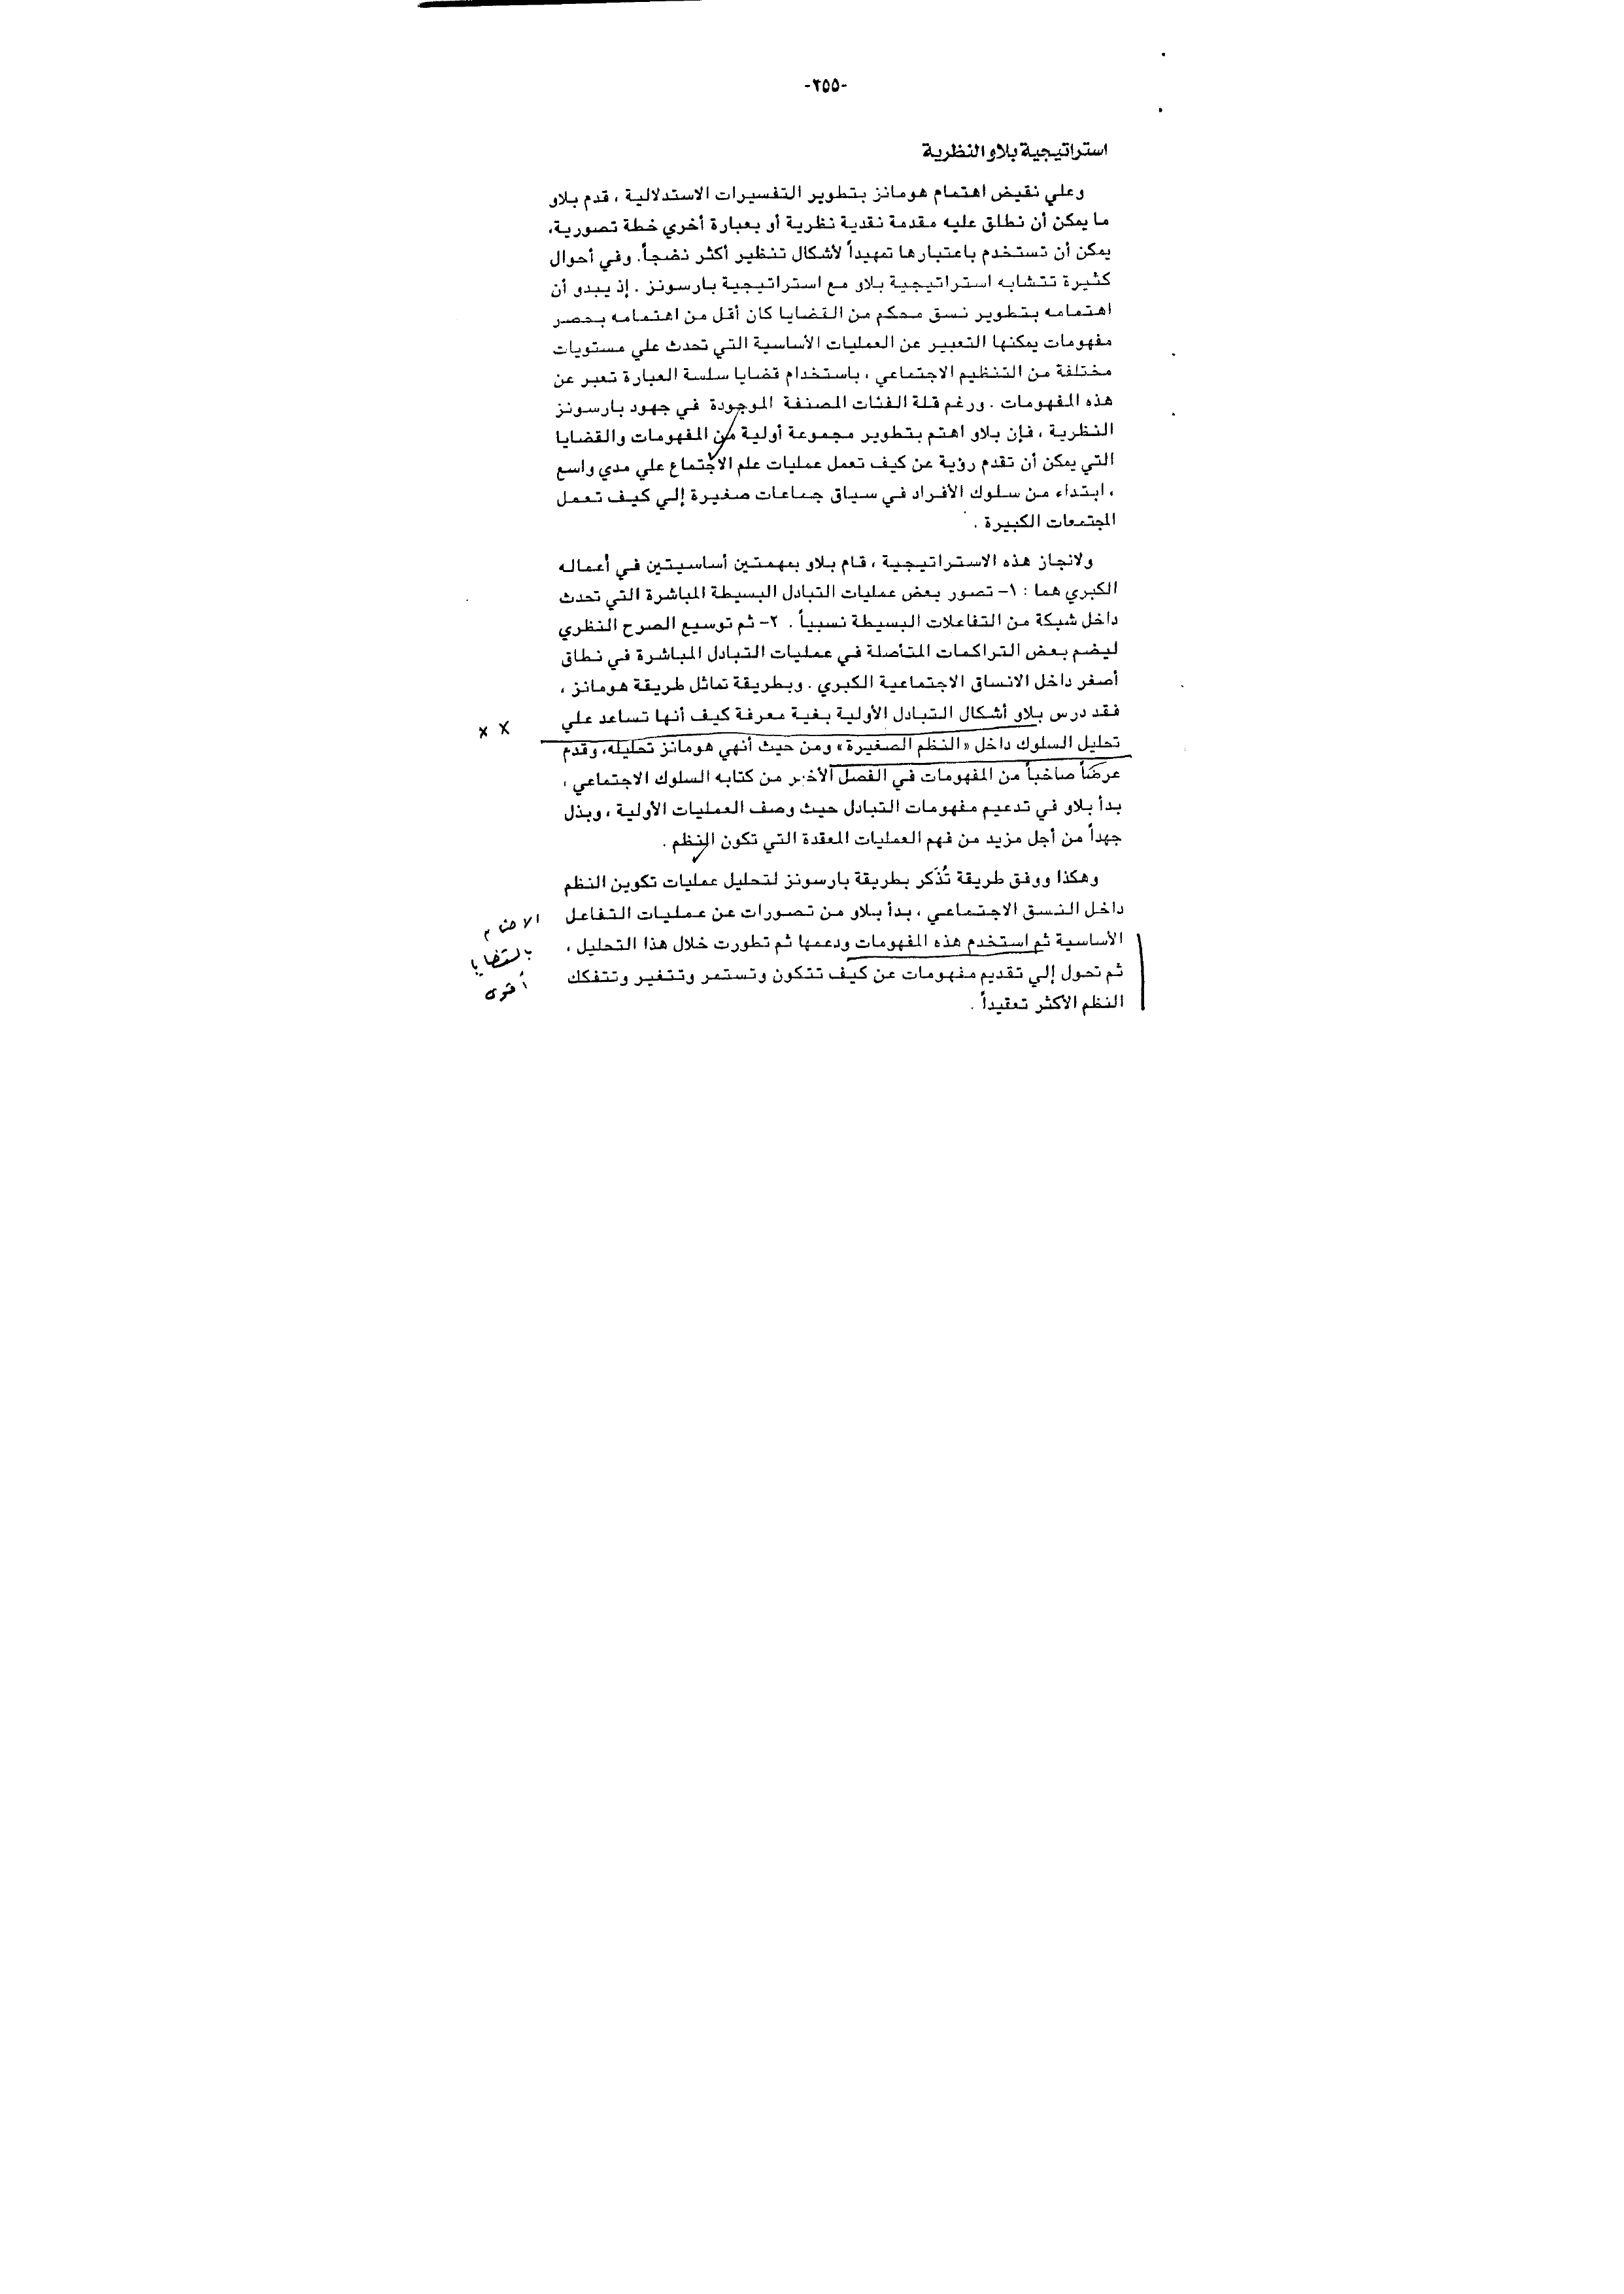 -٢٥٥-
استراتيجية بلاو النظرية
وعلي نقيض اهتمام هومانز بتطوير التفسيرات الاستدلالية ، قدم بلاو
ما يمكن أن نطلق عليه مقدمة نقدية نظرية أو بعبارة أخري خطة تصورية،
يمكن أن تستخدم باعتبارها تمهيداً لأشكال تنظير أكثر نضجاً. وفي أحوال
كثيرة تتشابه استراتيجية بلاو مع استراتيجية بارسونز . إذ يبدو أن
اهتمامه بتطوير نسق محكم من القضايا كان أقل من اهتمامه بحصر
مفهومات يمكنها التعبير عن العمليات الأساسية التي تحدث علي مستويات
مختلفة من التنظيم الاجتماعي ، باستخدام قضايا سلسة العبارة تعبر عن
هذه المفهومات . ورغم قلة الفئات المصنفة الموجودة في جهود بارسونز
النظرية ، فإن بلاو اهتم بتطوير مجموعة أولية من المفهومات والقضايا
التي يمكن أن تقدم رؤية عن كيف تعمل عمليات علم الاجتماع علي مدي واسع
، ابتداء من سلوك الأفراد في سياق جماعات صغيرة إلي كيف تعمل
المجتمعات الكبيرة .
ولانجاز هذه الاستراتيجية ، قام بلاو بمهمتين أساسيتين في أعماله
الكبري هما : ١- تصور بعض عمليات التبادل البسيطة المباشرة التي تحدث
داخل شبكة من التفاعلات البسيطة نسبياً . ٢- ثم توسيع الصرح النظري
ليضم بعض التراكمات المتأصلة في عمليات التبادل المباشرة في نطاق
أصغر داخل الانساق الاجتماعية الكبري . وبطريقة تماثل طريقة هومانز ،
فقد درس بلاو أشكال التبادل الأولية بغية معرفة كيف أنها تساعد علي
x x
تحليل السلوك داخل «النظم الصغيرة» ومن حيث أنهي هومانز تحليله، وقدم
عرضاً صاخباً من المفهومات في الفصل الأخير من كتابه السلوك الاجتماعي ،
بدأ بلاو في تدعيم مفهومات التبادل حيث وصف العمليات الأولية ، وبذل
جهداً من أجل مزيد من فهم العمليات المعقدة التي تكون النظم .
وهكذا ووفق طريقة تُذَكر بطريقة بارسونز لتحليل عمليات تكوين النظم
داخل النسق الاجتماعي ، بدأ بلاو من تصورات عن عمليات التفاعل
الأساسية ثم استخدم هذه المفهومات ودعمها ثم تطورت خلال هذا التحليل ،
ثم تحول إلي تقديم مفهومات عن كيف تتكون وتستمر وتتغير وتتفكك
النظم الأكثر تعقيداً .
بالقضايا